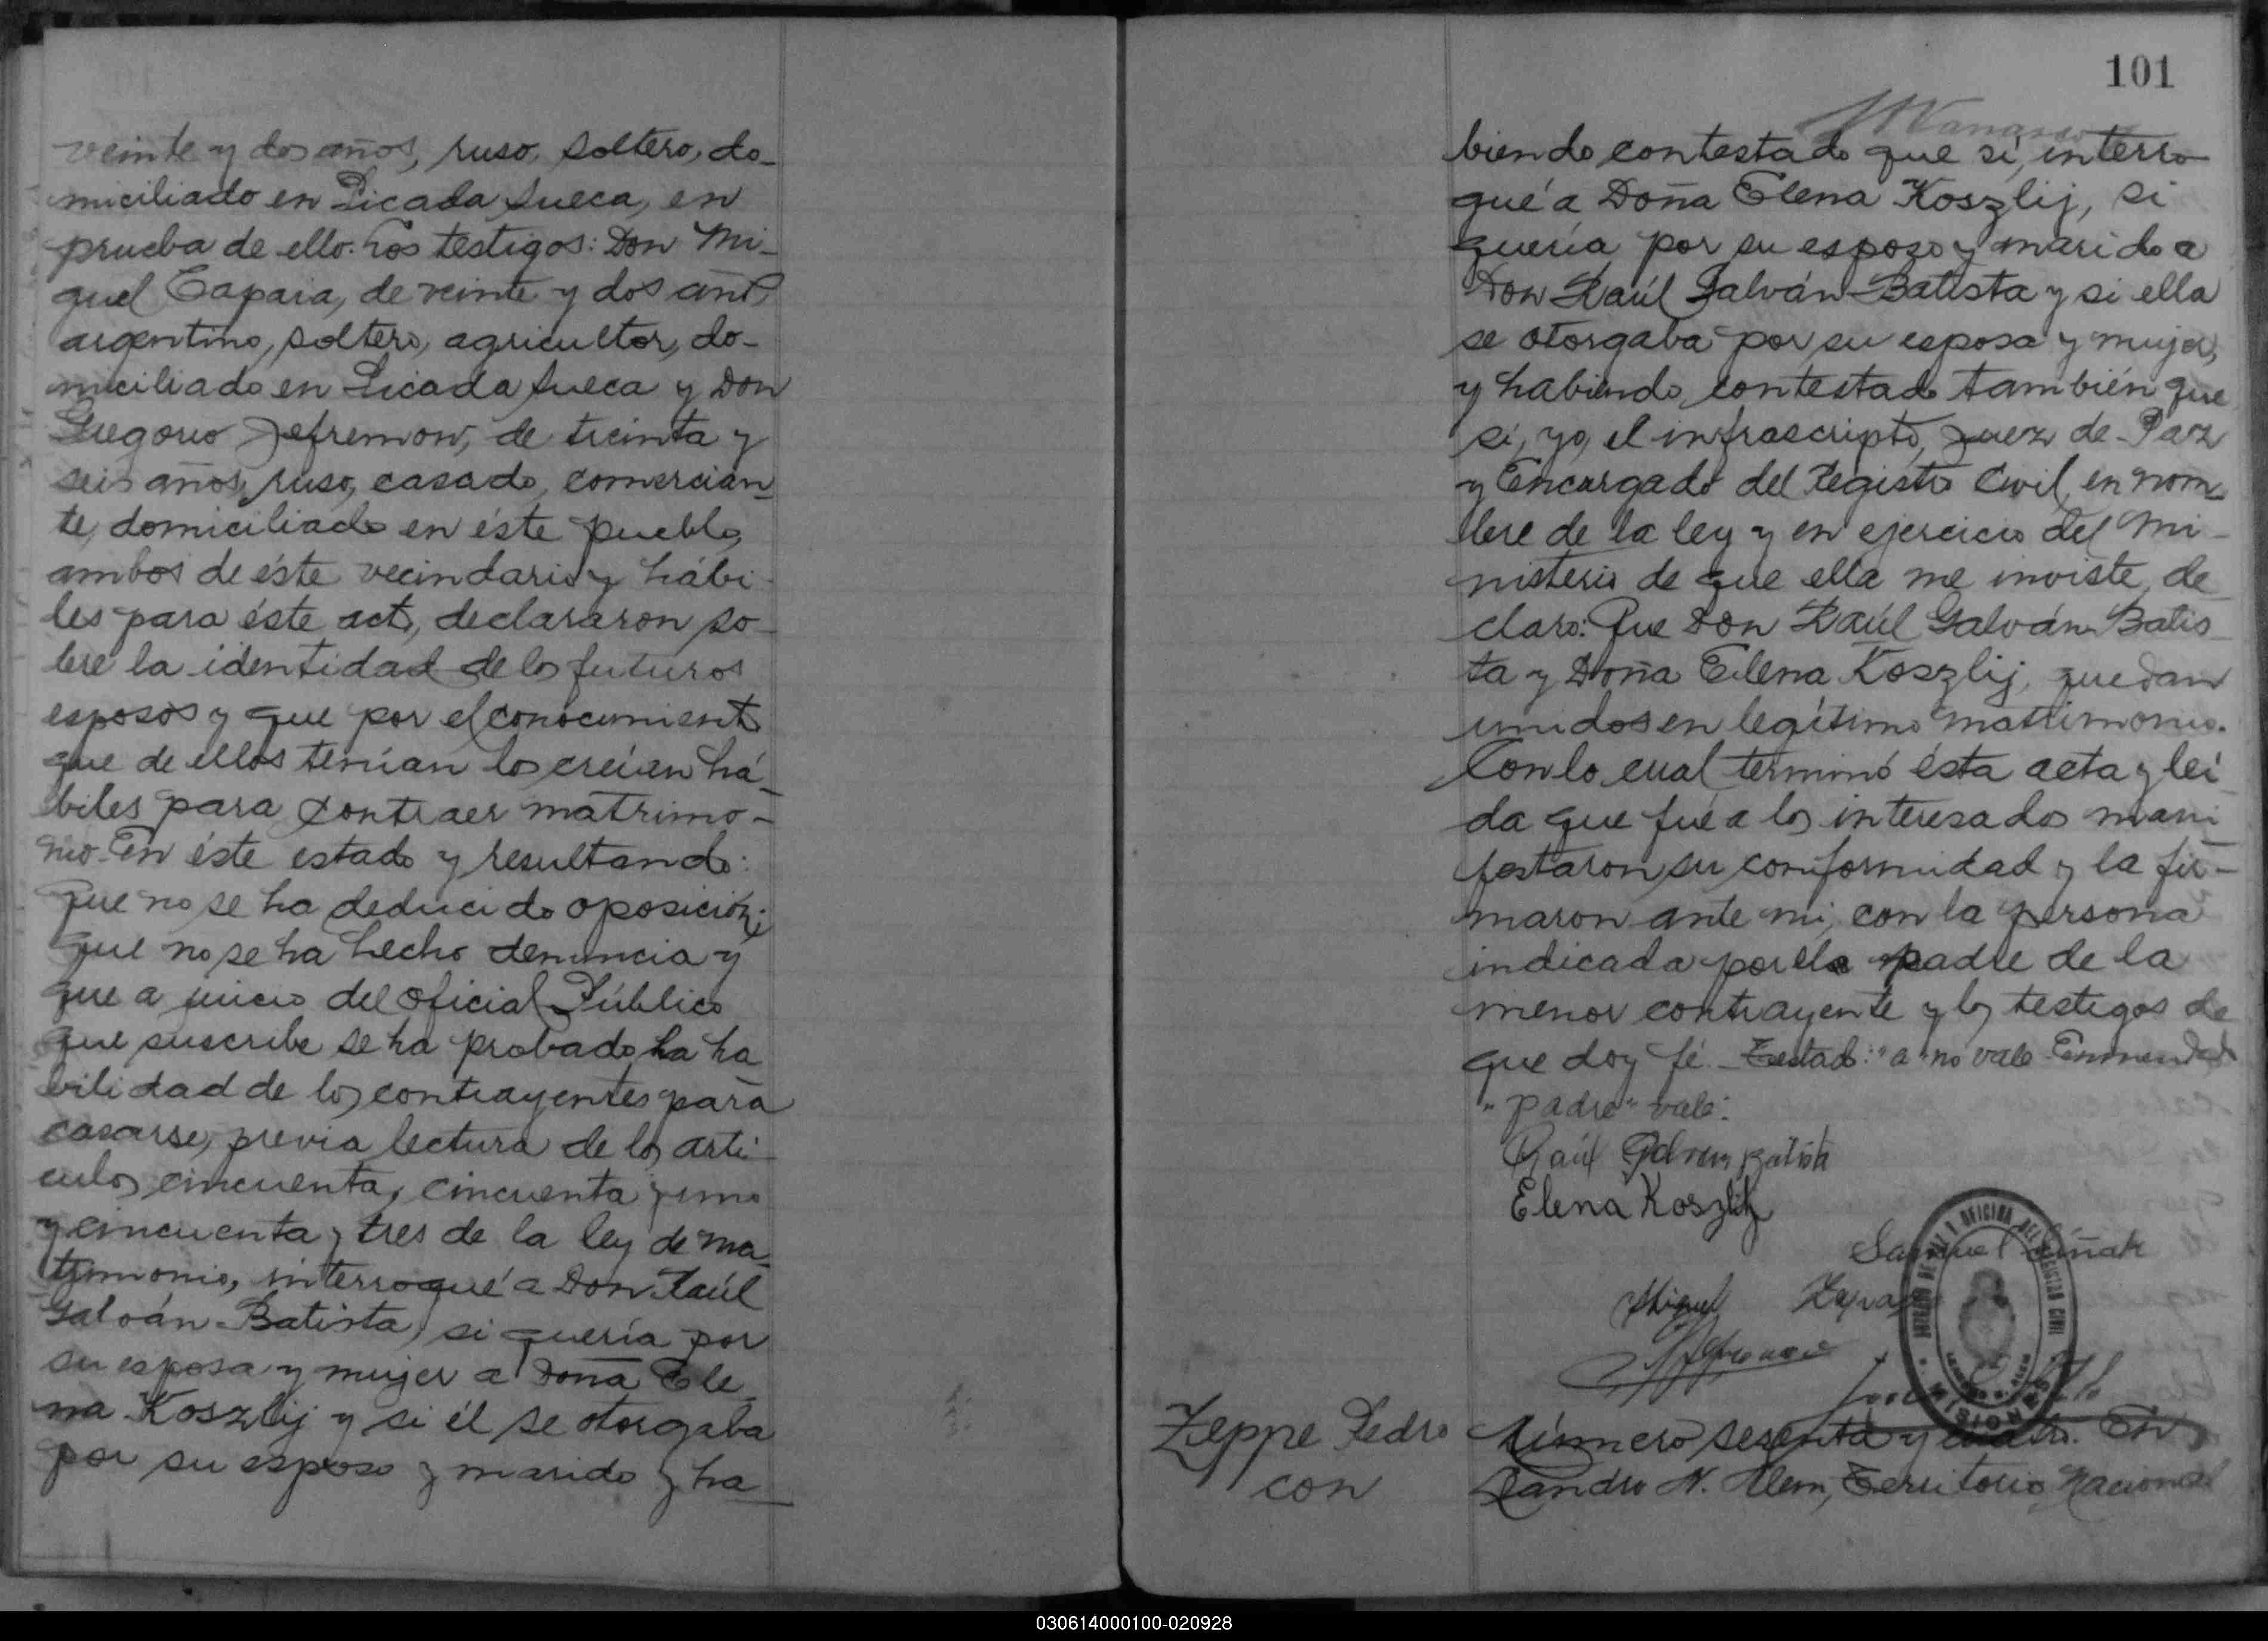 veinte y dos años, ruso, soltero, do-
miciliado en Picada Sueca, en
prueba de ello. Los testigos: Don Mi-
guel Capaia, de veinte y dos años
argentino, soltero, agricultor, do-
miciliado en Picada Sueca y Don
Gregorio Jefremow, de treinta y
seis años, ruso, casado, comercian-
te, domiciliado en éste pueblo,
ambos de éste vecindario y hábi-
les para éste acto, declararon so-
bre la identidad de los futuros
esposos y que por el conocimiento
que de ellos tenían los creían há-
biles para contraer matrimo-
nio. En éste estado y resultando:
que no se ha deducido oposición;
que no se ha hecho denuncia y
que a juicio del Oficial Público
que suscribe se ha probado la ha
bilidad de los contrayentes para
casarse, previa lectura de los arti-
culos cincuenta, cincuenta y uno
y cincuenta y tres de la ley de ma-
trimonio, interrogué a Don Raúl
Galván Batista, si quería por
su esposa y mujer a Doña Ele-
na Koszlij y si él se otorgaba
por su esposo y marido y ha-
101
biendo contestado que sí, interro-
gué a Doña Elena Koszlij, si
quería por su esposo y marido a
Don Raúl Galván Batista y si ella
se otorgaba por su esposa y mujer,
y habiendo contestado también que
sí, yo, el infrascripto, Juez de Paz
y Encargado del Registro Civil, en nom-
bre de la ley y en ejercicio del Mi-
nisterio de que ella me inviste, de-
claro: Que Don Raúl Galván Batis-
ta y Doña Elena Koszlij, quedan
unidos en legítimo matrimonio.
Con lo cual terminó ésta acta y leí-
da que fué a los interesados mani-
festaron su conformidad y la fir-
maron ante mi, con la persona
indicada por el padre de la
menor contrayente y los testigos de
que doy fé. Testado: "a" no vale. Enmendado
"padre" vale.
Raúl Galvan Batista
Elena Koszlij
Samuel
Miguel
MISIONES
Zeppe Pedro
con
Número sesenta y cuatro. En
Leandro N. Alem, Territorio Nacional
030614000100-020928